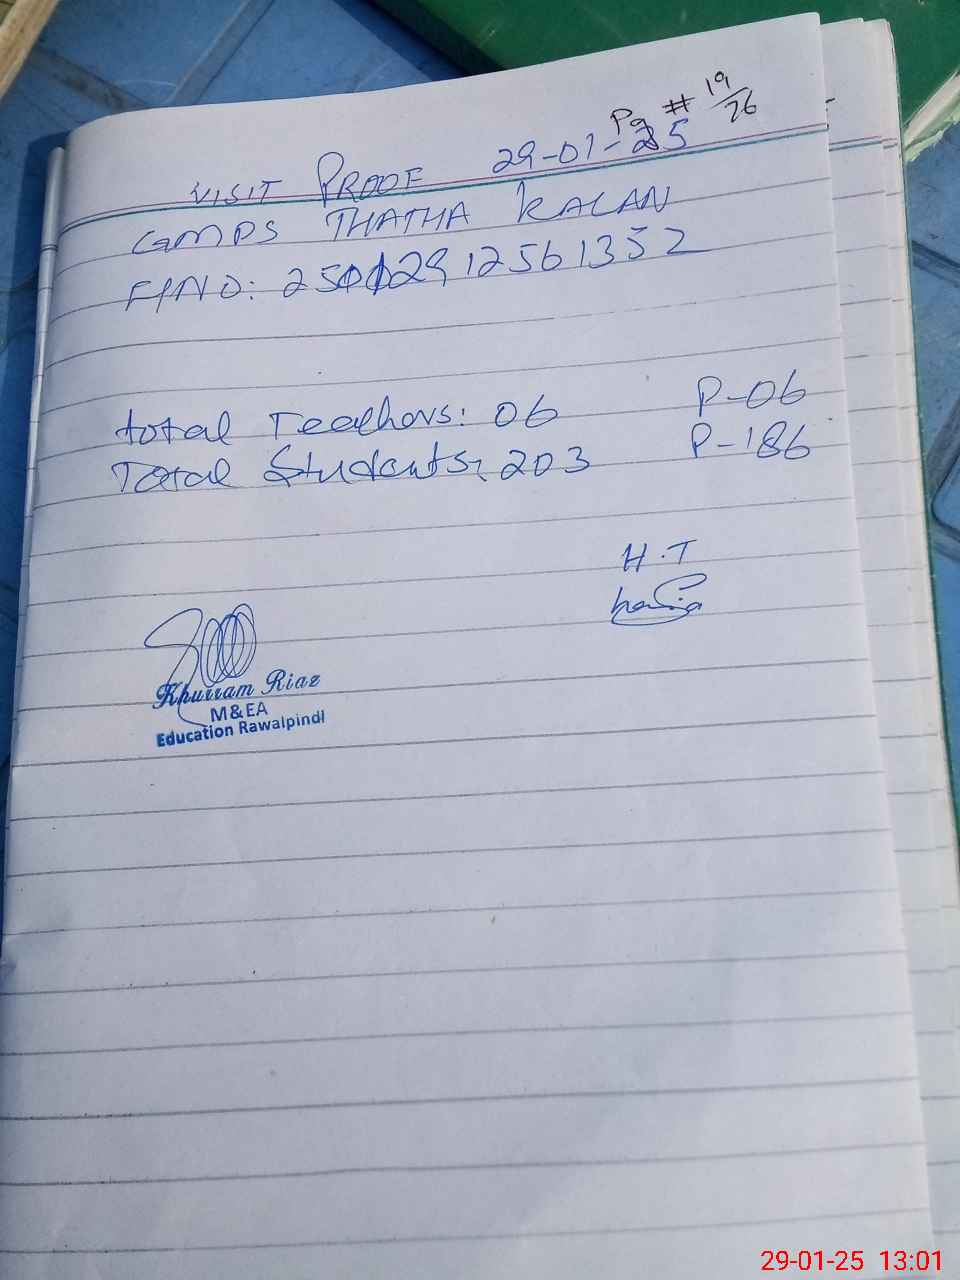 Pg # 19/26
VISIT PROOF 29-01-25
GMPS THATHA KALAN
F/NO: 25012912561352
total Teachers: 06 P-06
Total Students: 203 P-186
H.T
Khurram Riaz
M&EA
Education Rawalpindi
29-01-25 13:01